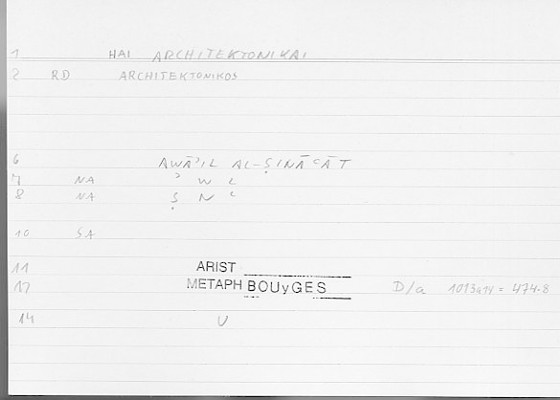 1 HAI ARCHITEKTONIKAI
2 RD ARCHITEKTONIKOS
6 AWĀʾIL AL-ṢINĀʿĀT
7 NA ʾ W L
8 NA Ṣ N ʿ
10 SA
11 ARIST
METAPH BOUyGES D/a 1013a14 = 474.8
14 U